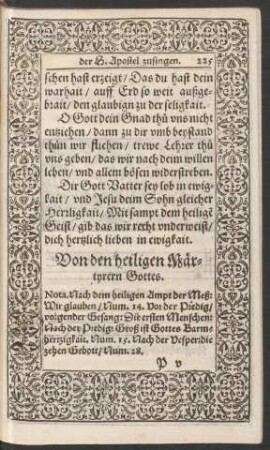 der H. Apostel zusingen. 225
schen hast erzeigt / Das du hast dein
warhait / auff Erd so weit außge-
brait / den glaubign zu der seligkait.
O Gott dein Gnad thů vns nicht
entziehen / dann zu dir vmb beystand
thůn wir fliehen / trewe Lehrer thů
vns geben / das wir nach deinn willen
leben / vnd allem bösen widerstreben.
Dir Gott Vatter sey lob in ewig-
kait / vnd Jesu deim Sohn gleicher
Herzligkait / Mit sampt dem heiligē
Geist / gib das wir recht vnderweist /
dich hertzlich lieben in ewigkait.
Von den heiligen Mär-
tyrern Gottes.
Nota. Nach dem heiligen Ampt der Meß:
Wir glauben / Num. 14. Vor der Predig /
volgender Gesang: Die ersten Menschen:
Nach der Predig: Groß ist Gottes Barm-
hertzigkait. Num. 15. Nach der Vesper die
zehen Gebott / Num. 28.
P v